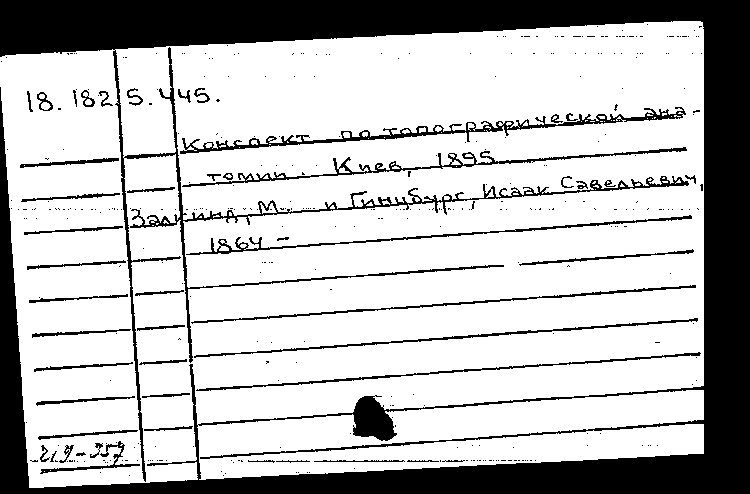 18.182.5.445.
Конспект по топографической ана-
томии. Киев, 1895
Залкинд, М. и Гинцбург, Исаак Савельевич,
1864 -